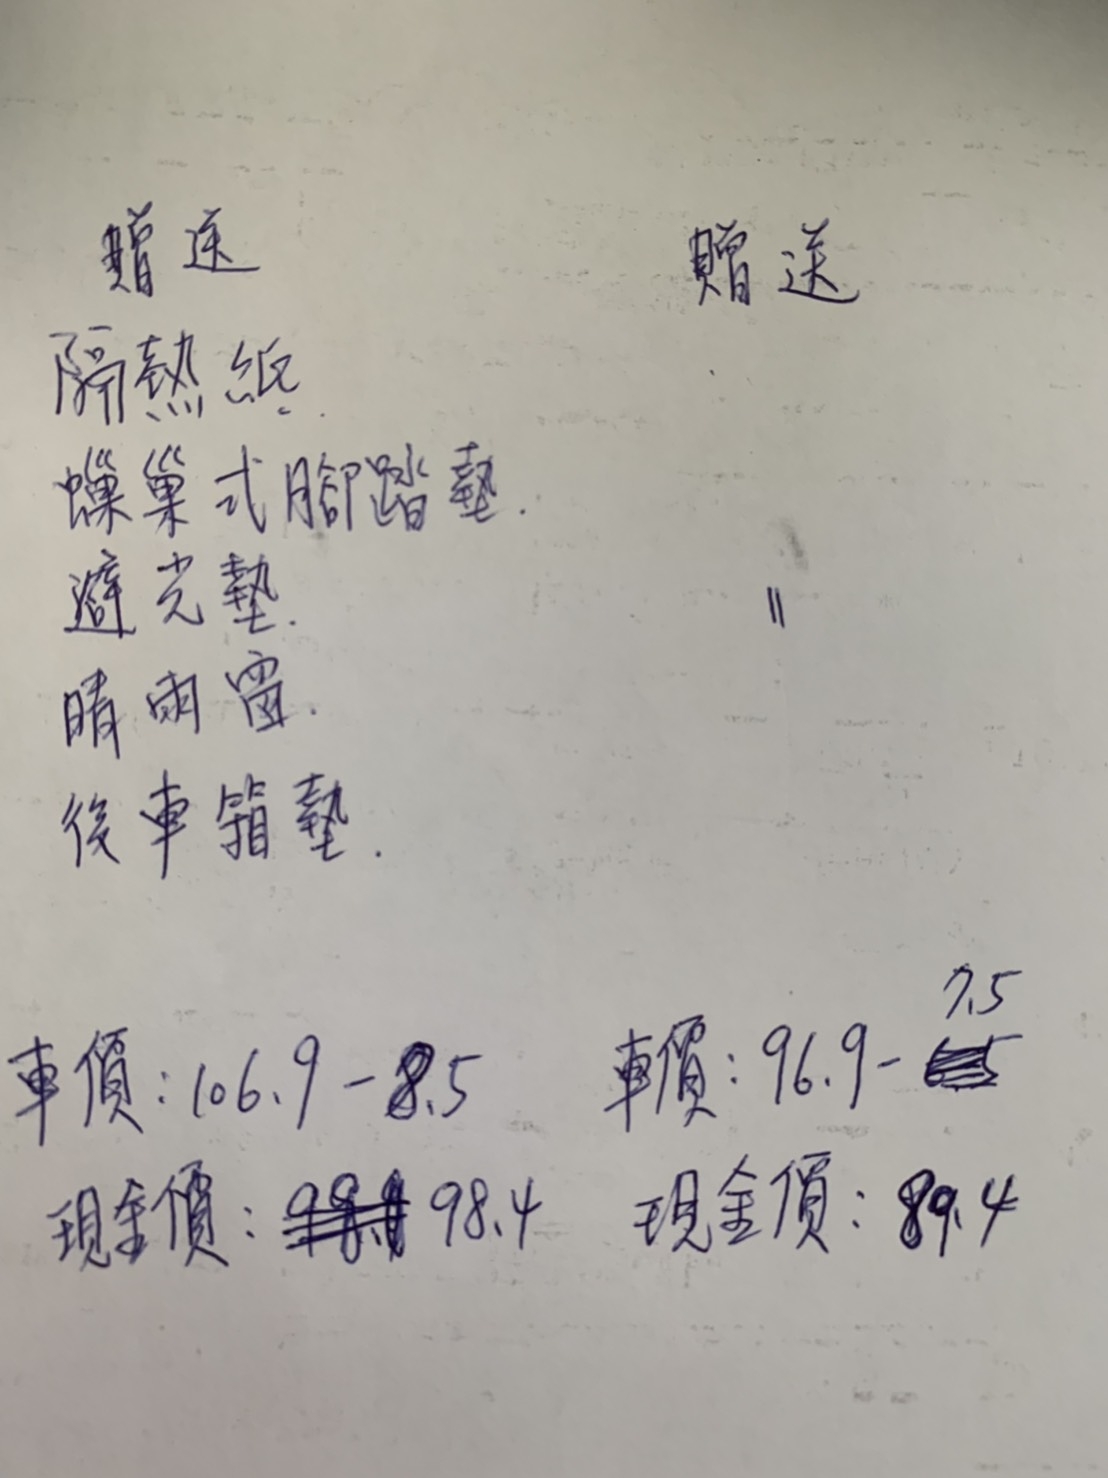 贈送
隔熱紙.
蠟巢式腳踏墊.
避光墊.
晴雨窗.
後車箱墊.
車價:106.9-8.5
現金價: 98.4
贈送
〃
7.5
車價:96.9-
現金價:89.4